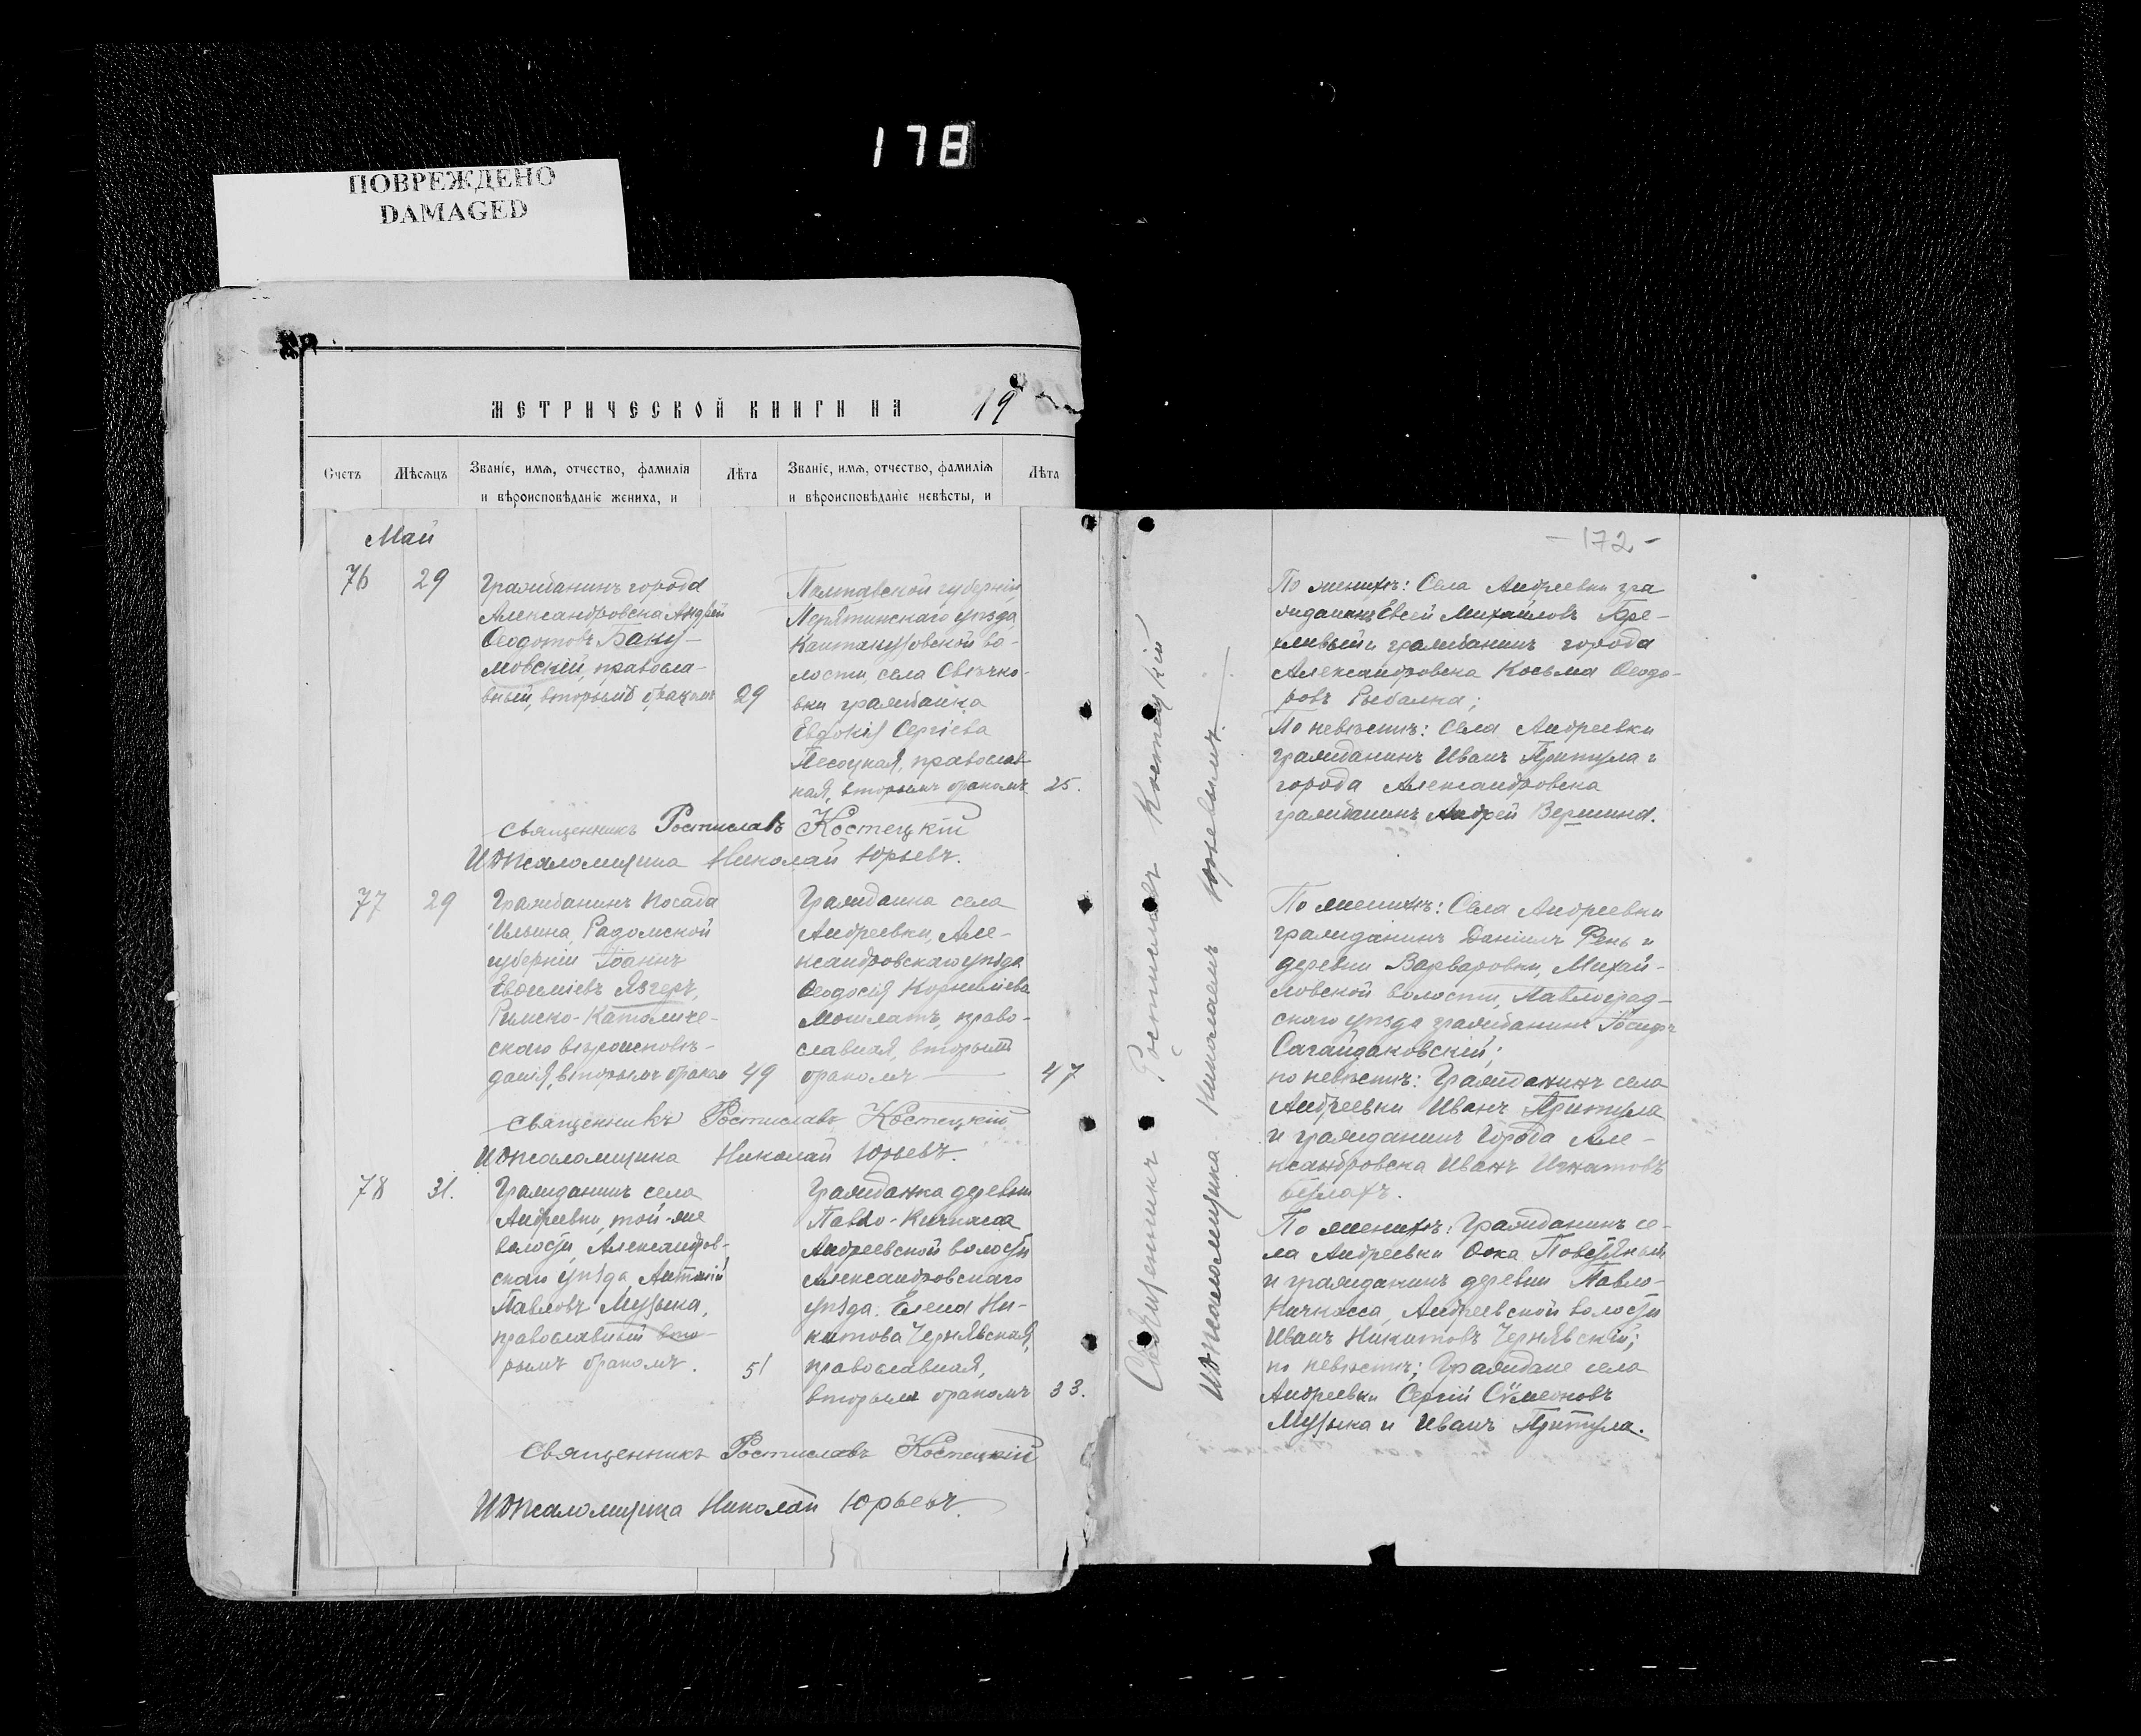 178
ПОВРЕЖДЕНО
DAMAGED
МЕТРИЧЕСКОЙ КНИГИ НА 19
Счетъ
Мѣсяцъ
Званіе, имя, отчество, фамилія
и вѣроисповѣданіе жениха, и
Лѣта
Званіе, имя, отчество, фамилія
и вѣроисповѣданіе невѣсты, и
Лѣта
Май
76
29
Гражданинъ города
Александровска Андрей
Ѳеодотовъ
мовскій, правосла-
вный, вторымъ бракомъ
29
Полтавской губерніи,
уѣзда,
во-
лости, села Свѣчко-
вки гражданка
Евдокія Сергіева
Песоцкая, православ
ная, вторымъ бракомъ
25.
Священникъ Ростиславъ Костецкій
И. д. псаломщика Николай Юрьевъ.
77
29
Гражданинъ посада
Ильина, Радомской
губерніи Іоаннъ
Язгеръ,
Римско-Католиче-
скаго вѣроисповѣ-
данія, вторымъ бракомъ
49
Гражданка села
Андреевки, Але-
ксандровскаго уѣзда
Ѳеодосія Корниліева
право-
славная, вторымъ
бракомъ
47
Священникъ Ростиславъ Костецкій
И. д. псаломщика Николай Юрьевъ.
78
31.
Гражданинъ села
Андреевки, той-же
волости, Александров-
скаго уѣзда, Антоній
Павловъ Музыка,
православный вто-
рымъ бракомъ.
51
Гражданка деревни
Павло-Кичкаса
Андреевской волости
Александровскаго
уѣзда. Елена Ни-
китова Чернявская,
православная,
вторымъ бракомъ
33.
Священникъ Ростиславъ Костецкій
И. д. псаломщика Николай Юрьевъ.
Священникъ Ростиславъ Костецкій
И. д. псаломщика Николай
- 172 -
По женихѣ: Села Андреевки гра
жданинъ Евсей Михайловъ
и гражданинъ города
Александровска Косьма Ѳеодо-
ровъ Рыбалка;
По невѣстѣ: Села Андреевки
гражданинъ Иванъ Притула и
города Александровска
гражданинъ Андрей Вершина.
По женихѣ: Села Андреевки
гражданинъ Даніилъ Рень и
деревни Варваровки, Михай-
ловской волости, Павлоград-
скаго уѣзда гражданинъ Іосифъ
Сагайдаковскій;
по невѣстѣ: Гражданинъ села
Андреевки Иванъ Притула
и гражданинъ города Але-
ксандровска Иванъ Игнатовъ
Булахъ.
По женихѣ: Гражданинъ се-
ла Андреевки Ѳока
и гражданинъ деревни Павло-
Кичкасса, Андреевской волости
Иванъ Никитовъ Чернявскій;
по невѣстѣ; Граждане села
Андреевки Сергій Сѵмеоновъ
Музыка и Иванъ Притула.